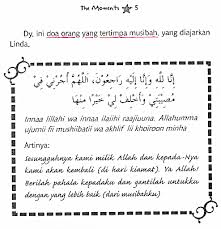 The Moments ★ 5
Dy, ini doa orang yang tertimpa musibah, yang diajarkan
Linda,
إِنَّا لِلَّهِ وَإِنَّا إِلَيْهِ رَاجِعُونَ، اَللَّهُمَّ أْجُرْنِيْ فِيْ
مُصِيْبَتِيْ وَأَخْلِفْ لِيْ خَيْرًا مِنْهَا
Innaa lillahi wa innaa ilaihi raajiuuna. Allahumma
ujurnii fii mushiibatii wa akhlif lii khoiroon minha
Artinya:
Sesungguhnya kami milik Allah dan kepada-Nya
kami akan kembali (di hari kiamat). Ya Allah!
Berilah pahala kepadaku dan gantilah untukku
dengan yang lebih baik (dari musibahku)